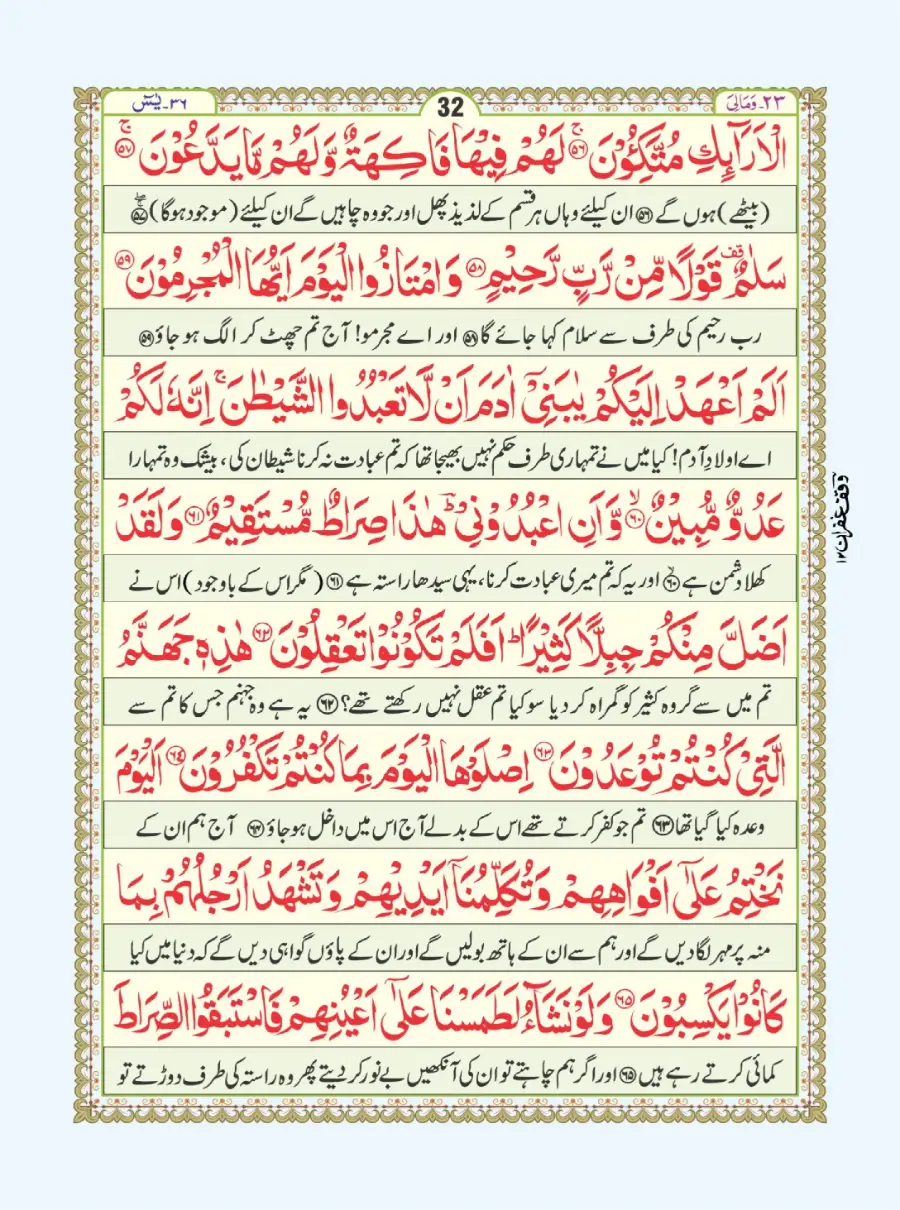 ٢٣۔ وَمَالِیَ
32
٣٦۔ یٰسٓ
الْاَرَآئِكِ مُتَّكِـُٔوْنَ ۚ ٥٦ لَهُمْ فِيْهَا فَاكِهَةٌ وَّلَهُمْ مَّا يَدَّعُوْنَ ۚ ٥٧
(بیٹھے) ہوں گے ٥٦ ان کیلئے وہاں ہر قسم کے لذیذ پھل اور جو وہ چاہیں گے ان کیلئے (موجود ہوگا) ٥٧
سَلٰمٌ ۣ قف قَوْلًا مِّنْ رَّبٍّ رَّحِيْمٍ ٥٨ وَ امْتَازُوا الْيَوْمَ اَيُّهَا الْمُجْرِمُوْنَ ٥٩
رب رحیم کی طرف سے سلام کہا جائے گا ٥٨ اور اے مجرمو! آج تم چھٹ کر الگ ہو جاؤ ٥٩
اَلَمْ اَعْهَدْ اِلَيْكُمْ يٰبَنِيْٓ اٰدَمَ اَنْ لَّا تَعْبُدُوا الشَّيْطٰنَ ۚ اِنَّهٗ لَكُمْ
اے اولادِ آدم! کیا میں نے تمہاری طرف حکم نہیں بھیجا تھا کہ تم عبادت نہ کرنا شیطان کی، بیشک وہ تمہارا
عَدُوٌّ مُّبِيْنٌ ۙ ٦٠ وَّ اَنِ اعْبُدُوْنِيْ ؕ هٰذَا صِرَاطٌ مُّسْتَقِيْمٌ ٦١ وَ لَقَدْ
وقف غفران ١٢
کھلا دشمن ہے ٦٠ اور یہ کہ تم میری عبادت کرنا، یہی سیدھا راستہ ہے ٦١ (مگر اس کے باوجود) اس نے
اَضَلَّ مِنْكُمْ جِبِلًّا كَثِيْرًا ؕ اَفَلَمْ تَكُوْنُوْا تَعْقِلُوْنَ ٦٢ هٰذِهٖ جَهَنَّمُ
تم میں سے گروہ کثیر کو گمراہ کر دیا سو کیا تم عقل نہیں رکھتے تھے؟ ٦٢ یہ ہے وہ جہنم جس کا تم سے
الَّتِيْ كُنْتُمْ تُوْعَدُوْنَ ٦٣ اِصْلَوْهَا الْيَوْمَ بِمَا كُنْتُمْ تَكْفُرُوْنَ ٦٤ اَلْيَوْمَ
وعدہ کیا گیا تھا ٦٣ تم جو کفر کرتے تھے اس کے بدلے آج اس میں داخل ہو جاؤ ٦٤ آج ہم ان کے
نَخْتِمُ عَلٰٓى اَفْوَاهِهِمْ وَ تُكَلِّمُنَآ اَيْدِيْهِمْ وَ تَشْهَدُ اَرْجُلُهُمْ بِمَا
منہ پر مہر لگا دیں گے اور ہم سے ان کے ہاتھ بولیں گے اور ان کے پاؤں گواہی دیں گے کہ دنیا میں کیا
كَانُوْا يَكْسِبُوْنَ ٦٥ وَ لَوْ نَشَآءُ لَطَمَسْنَا عَلٰٓى اَعْيُنِهِمْ فَاسْتَبَقُوا الصِّرَاطَ
کمائی کرتے رہے ہیں ٦٥ اور اگر ہم چاہتے تو ان کی آنکھیں بے نور کر دیتے پھر وہ راستہ کی طرف دوڑتے تو